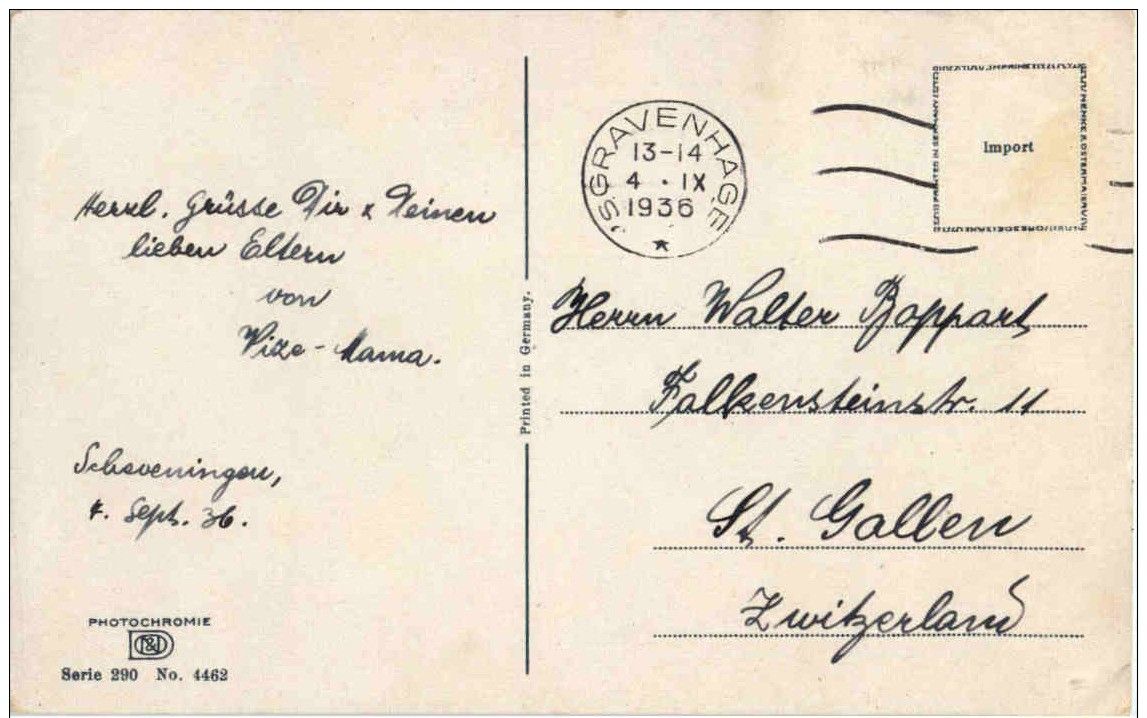 Herzl. Grüsse Dir & Deinen
lieben Eltern
von
Vize-Mama.
Scheveningen,
4. Sept. 36.
PHOTOCHROMIE
Serie 290 No. 4462
Printed in Germany.
'S GRAVENHAGE
13-14
4 . IX
1936
Import
Herrn Walter Boppart
Falkensteinstr. 11
St. Gallen
Zwitzerland